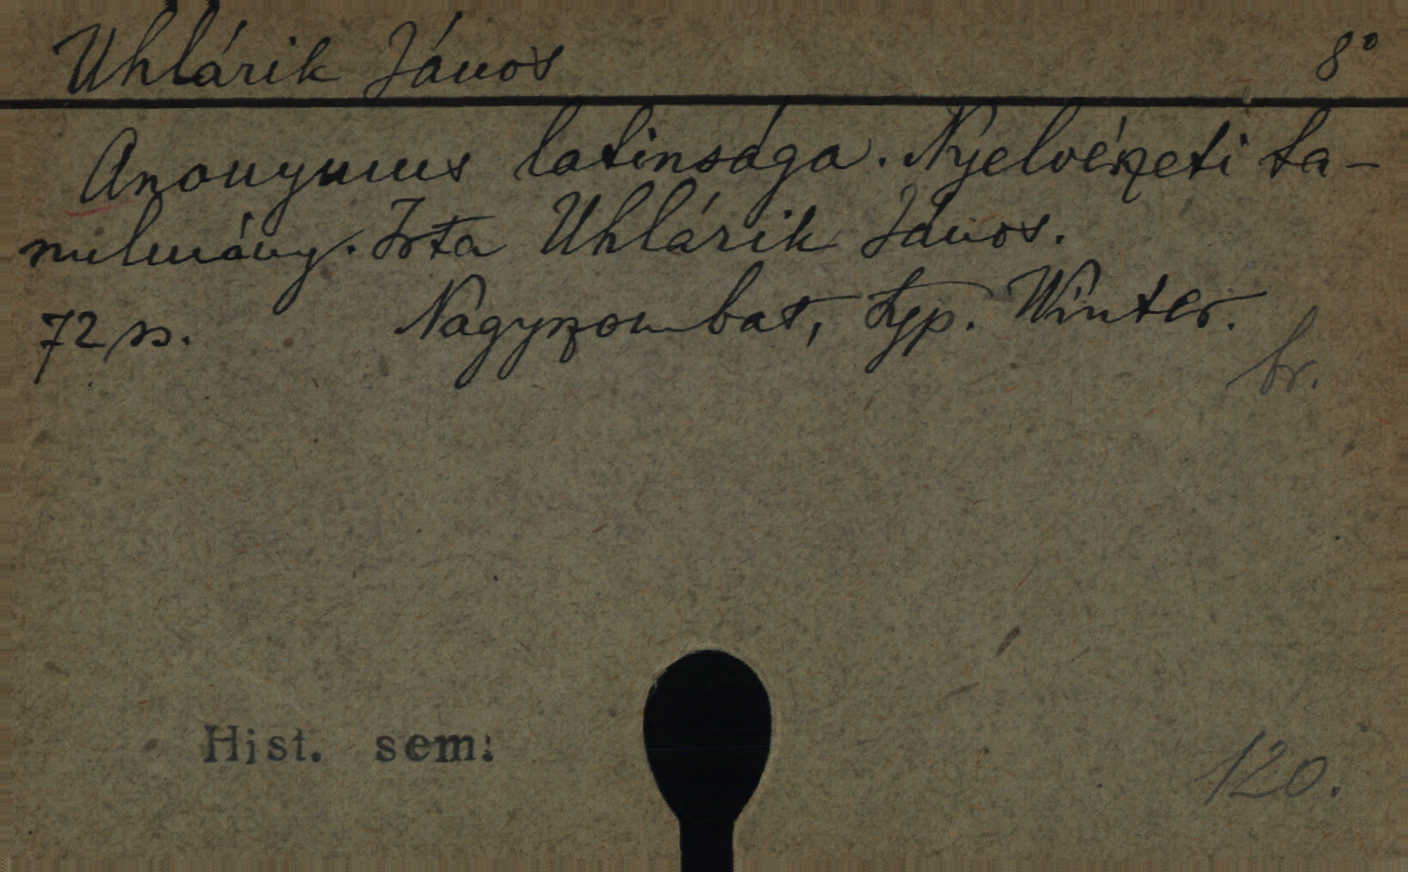 Uhlárik János 8°
Anonymus latinsága. Nyelvészeti ta-
nulmány. Irta Uhlárik János.
72 p. Nagyszombat, typ. Winter.
br.
Hist. sem.
120.